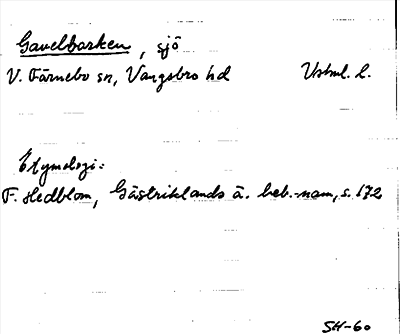 Gavelbasken, sjö
V. Färnebo sn, Vangsbro hd Vstml. l.
Etymologi:
F. Hedblom, Gästriklands ä. beb.-namn, s. 172
SH-60